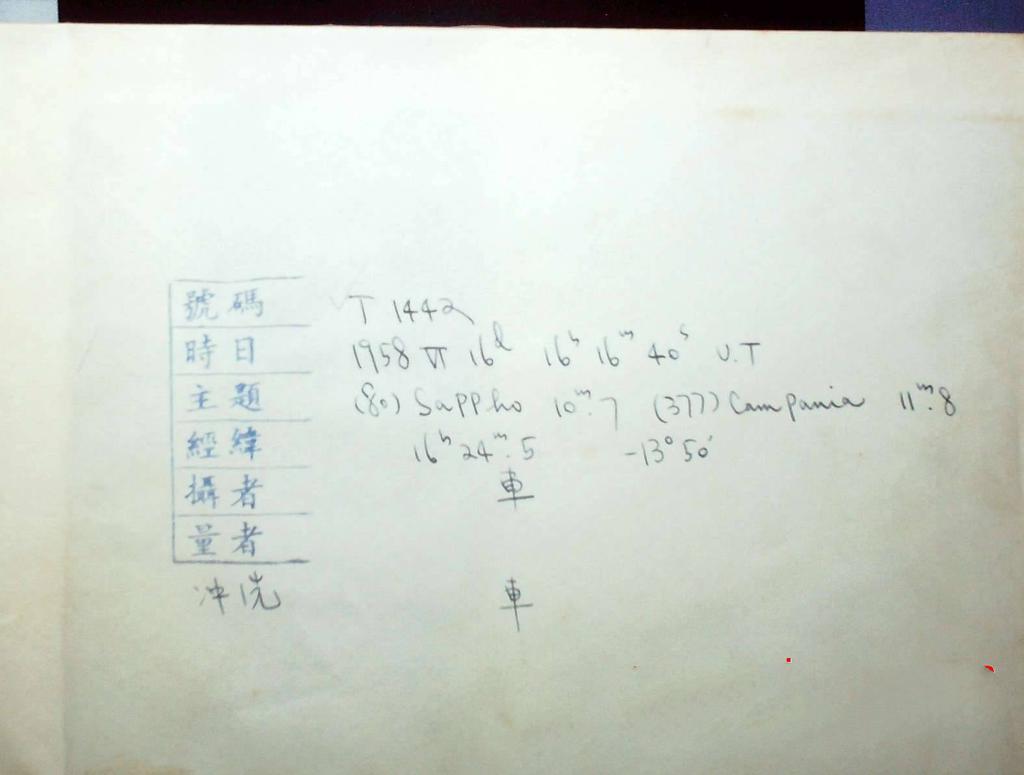 號碼 T 1442
時日 1958 VI 16ᵈ 16ʰ 16ᵐ 40ˢ U.T
主題 (80) Sappho 10ᵐ.7 (377) Campania 11ᵐ.8
經緯 16ʰ 24ᵐ.5 -13°50′
攝者 車
量者
冲洗 車